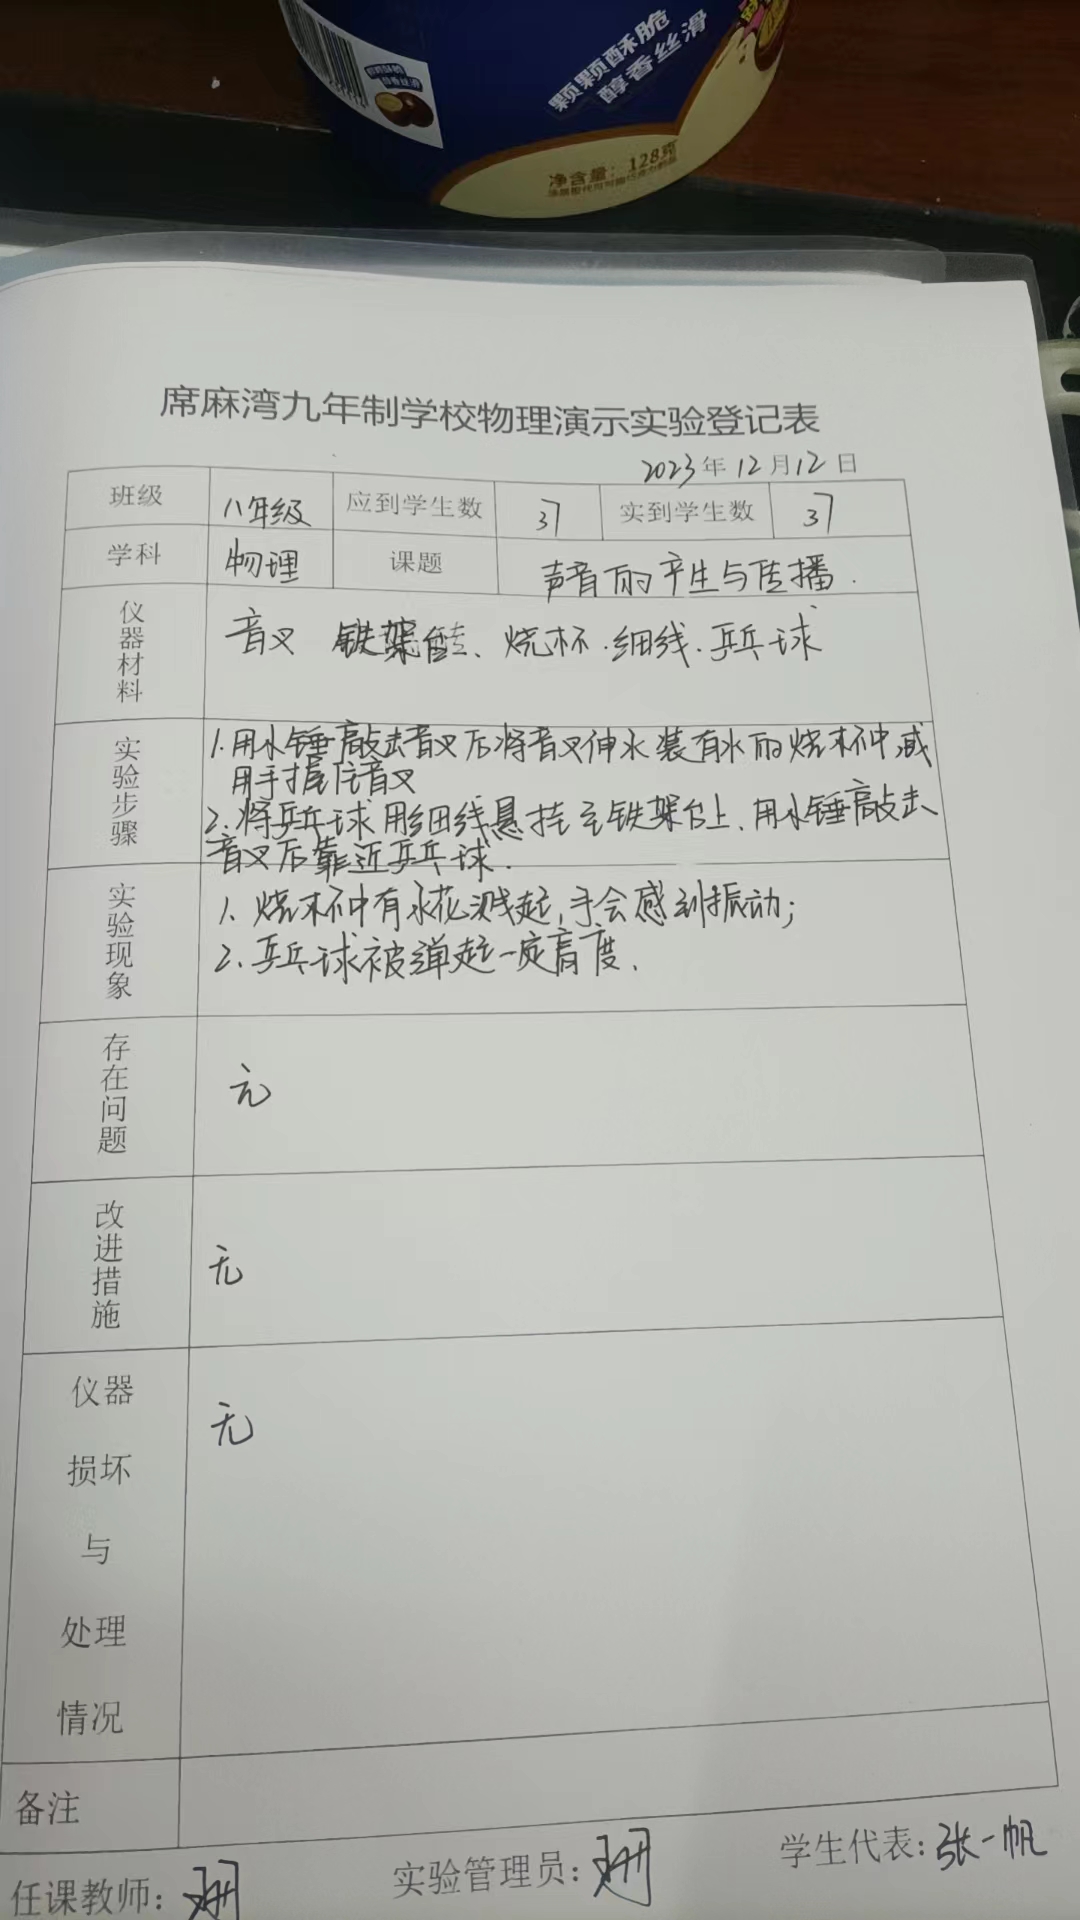 颗颗酥脆
醇香丝滑
净含量：128克
席麻湾九年制学校物理演示实验登记表
2023年12月12日
班级 八年级 应到学生数 37 实到学生数 37
学科 物理 课题 声音的产生与传播.
仪器材料 音叉 铁架台、烧杯.细线.乒乓球
实验步骤
1.用小锤敲击音叉后将音叉伸水装有水的烧杯中,或
用手握住音叉
2.将乒乓球用细线悬挂在铁架台上、用小锤敲击
音叉后靠近乒乓球.
实验现象
1、烧杯中有水花溅起,手会感到振动;
2、乒乓球被弹起一定高度.
存在问题 无
改进措施 无
仪器损坏与处理情况 无
备注
任课教师: 实验管理员: 学生代表:张一帆